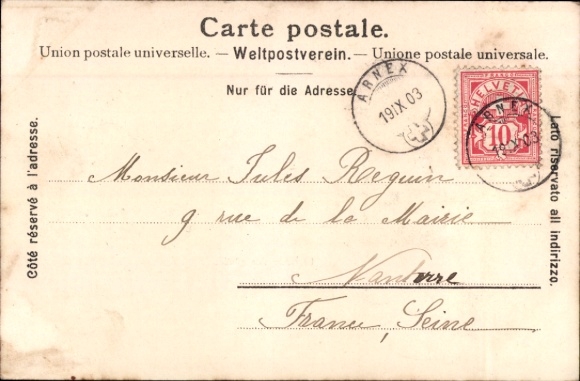 Carte postale.
Union postale universelle. — Weltpostverein. — Unione postale universale.
Nur für die Adresse
ARNEX
19 IX 03
FRANCO
HELVETIA
10
ARNEX
19 IX 03
Côté réservé à l'adresse.
Lato riservato all indirizzo.
Monsieur Jules Reguin
9 rue de la Mairie
Nanterre
France, Seine